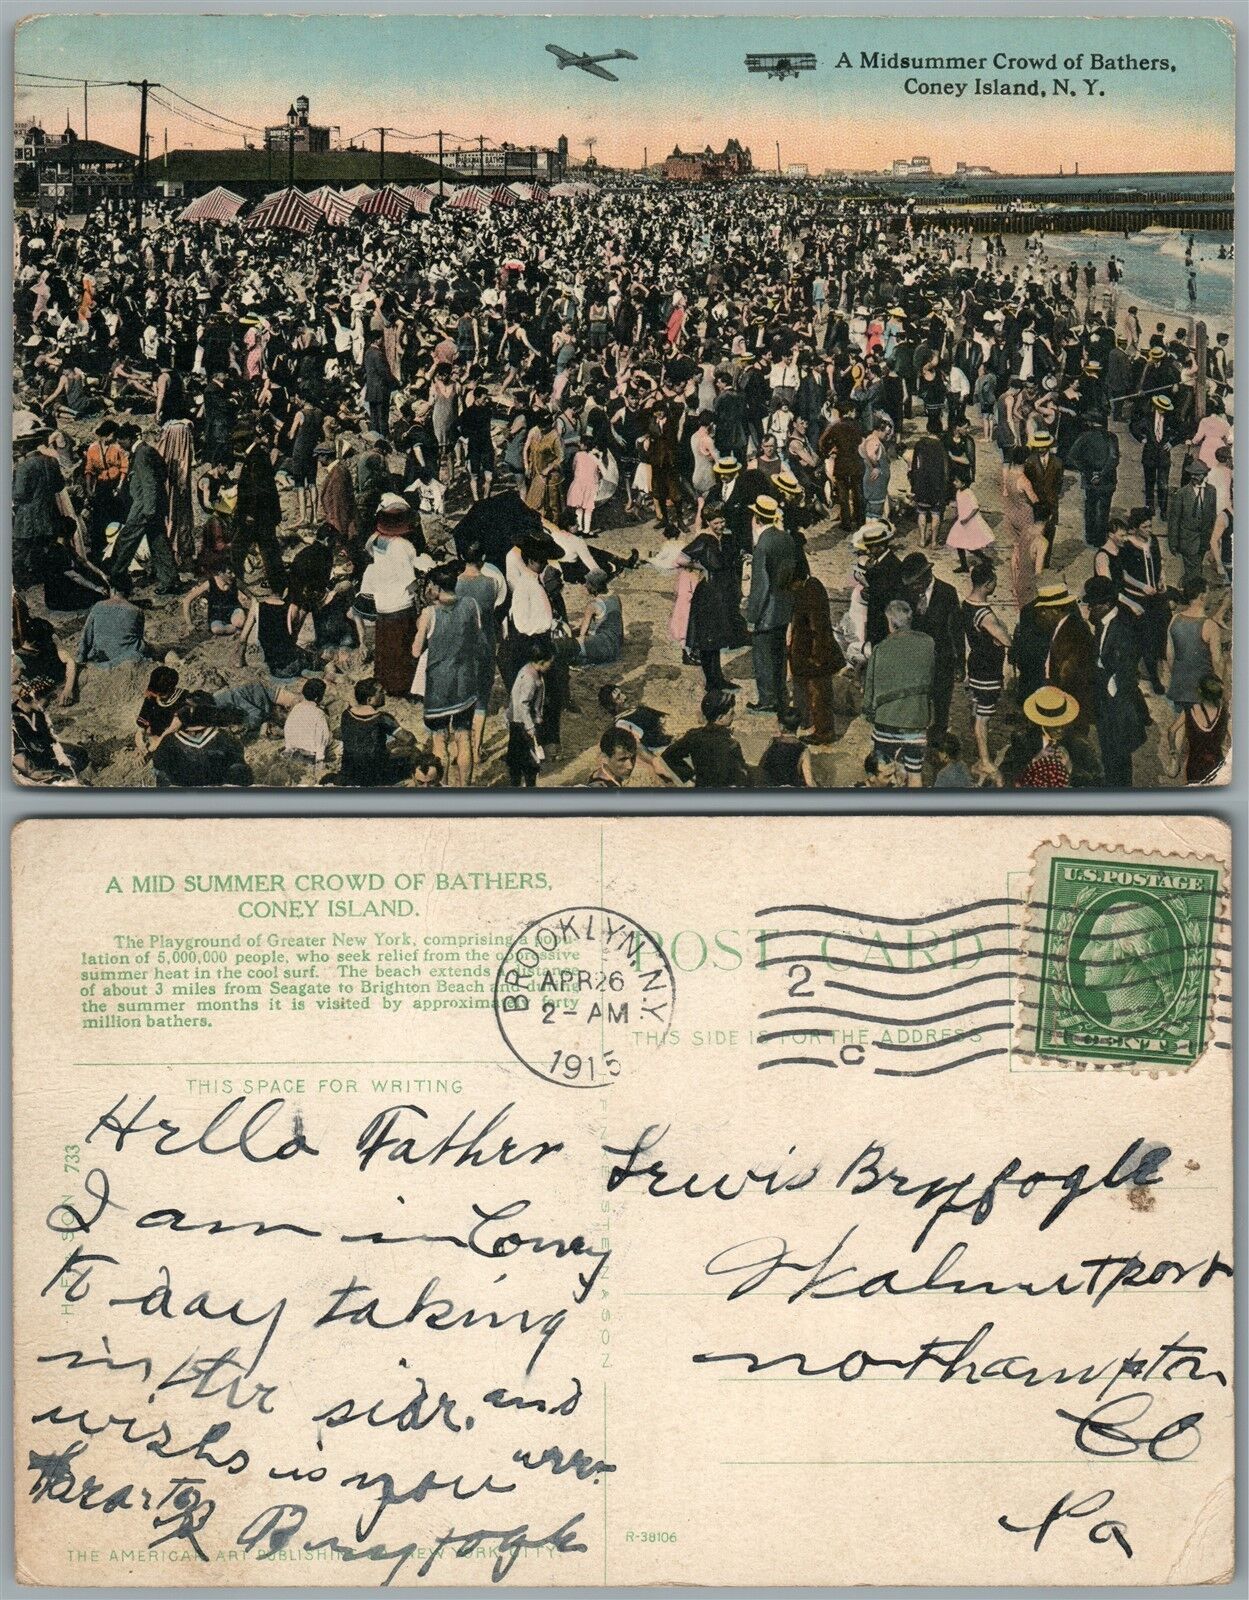 A Midsummer Crowd of Bathers,
Coney Island, N. Y.
A MID SUMMER CROWD OF BATHERS,
CONEY ISLAND.
The Playground of Greater New York, comprising a popu-
lation of 5,000,000 people, who seek relief from the oppressive
summer heat in the cool surf. The beach extends a distance
of about 3 miles from Seagate to Brighton Beach and during
the summer months it is visited by approximately forty
million bathers.
THIS SPACE FOR WRITING
BROOKLYN, N.Y.
APR 26
2- AM
1915
POST CARD
2
C
THIS SIDE IS FOR THE ADDRESS
U.S. POSTAGE
Hello Father
I am in Coney
to day taking
in the sidr, and
wishs is you
R Bryfogle
Lewis Bryfogle
Walnutport
northampton
Co
Pa
733
R-38106
THE AMERICAN ART PUBLISHING NEW YORK CITY.